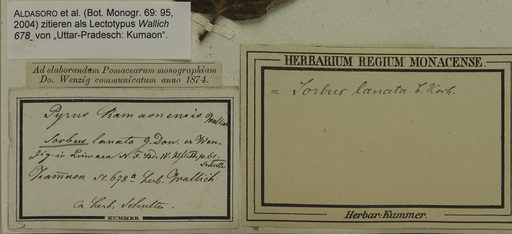 ALDASORO et al. (Bot. Monogr. 69: 95,
2004) zitieren als Lectotypus Wallich
678 von „Uttar-Pradesch: Kumaon“.
Ad elaborandam Pomacearum monographiam
Do. Wenzig communicatum anno 1874.
Pyrus Kamaonensis Wallich
Sorbus lanata G. Don. ex Wen-
zig in Linnaea N. F.
Kamaon N. 678a herb. Wallich
ex herb. Schultes
KUMMER
HERBARIUM REGIUM MONACENSE.
= Sorbus lanata
Herbar. Kummer.